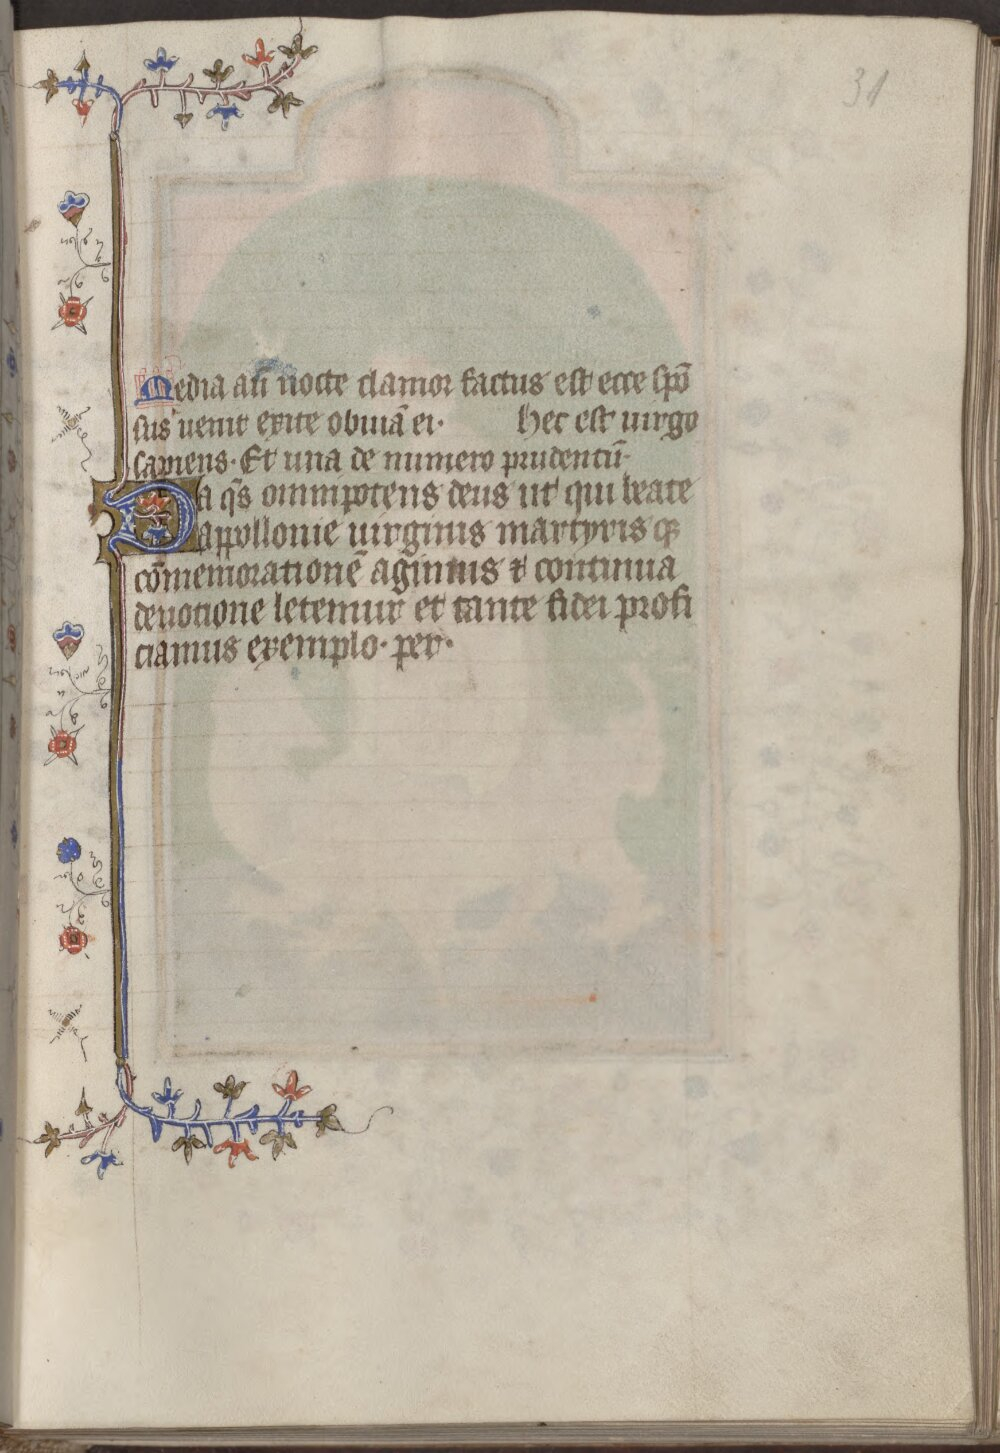 31
Media aū nocte clamor factus est ecce spō
sus uenit exite obuiā ei· Hec est uirgo
sapiens· Et una de numero prudentū·
Da q̄s omnipotens deus ut qui beate
appollonie uirginis martyris qꝫ
cōmemorationē agimus ⁊ continua
deuotione letemur et tante fidei profi
ciamus exemplo· per·